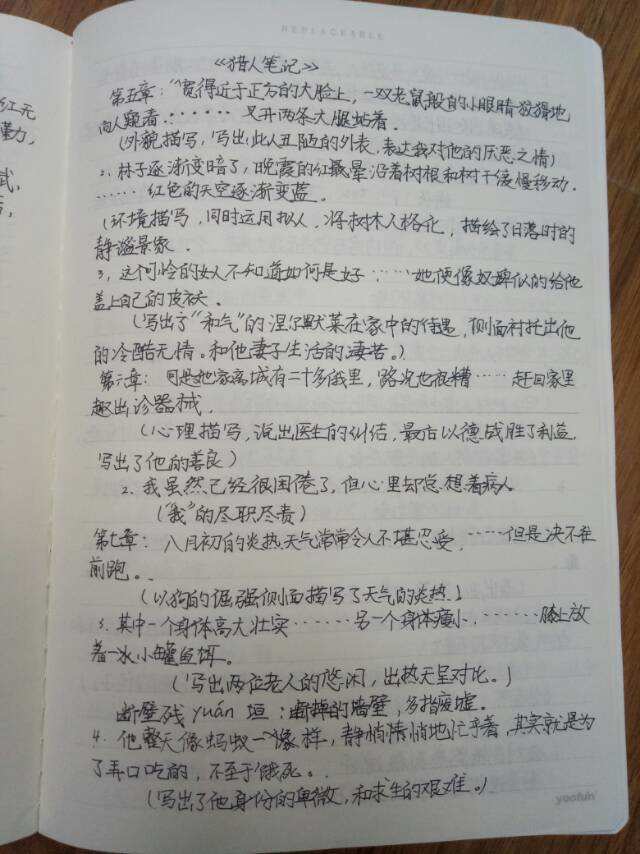 REPLACEABLE
《猎人笔记》
第五章："宽得近于正方的大脸上，一双老鼠般的小眼睛狡猾地
向人窥着.······叉开两条大腿站着.
(外貌描写，写出此人丑陋的外表，表达我对他的厌恶之情)
2、林子逐渐变暗了，晚霞的红晕沿着树根和树干缓慢移动.
······红色的天空逐渐变蓝.
(环境描写，同时运用拟人，将树木人格化，描绘了日落时的
静谧景象.
3，这可怜的女人不知道如何是好······她便像奴婢似的给他
盖上自己的皮袄.
(写出了"和气"的涅尔默菜在家中的待遇，侧面衬托出他
的冷酷无情。和他妻子生活的凄苦。)
第六章：可是她家离城有二十多俄里，路况也很糟······赶回家里
取出诊器械.
(心理描写，说出医生的纠结，最后以德战胜了利益.
写出了他的善良)
2.我虽然已经很困倦了，但心里却总想着病人
("我"的尽职尽责)
第七章：八月初的炎热天气常常令人不堪忍受，·····但是决不在
前跑。.
(以狗的倔强侧面描写了天气的炎热.)
3.其中一个身体高大壮实······另一个身体瘦小，······膝上放
着一小罐鱼饵。
(写出两位老人的悠闲，出热天呈对比。)
断壁残yuán垣：断掉的墙壁，多指废墟.
4.他整天像蚂蚁一样，静悄悄地忙乎着，其实就是为
了弄口吃的，不至于饿死。.
(写出了他身份的卑微，和求生的艰难。)
红无
yoofun